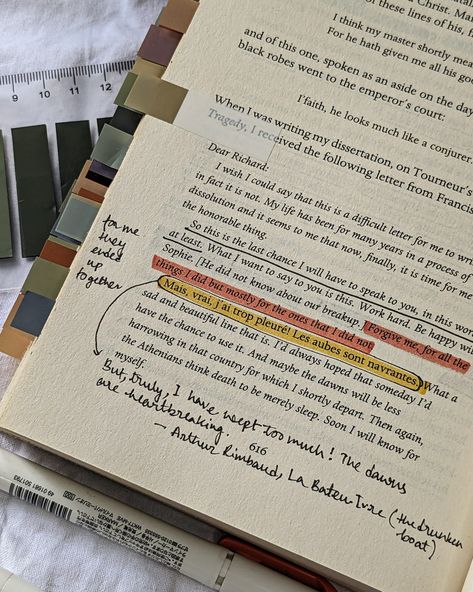 Christ. Ma
of these lines of his, f
I think my master shortly mea
For he hath given me all his go
and of this one, spoken as an aside on the day
black robes went to the emperor's court:
I'faith, he looks much like a conjure
When I was writing my dissertation, on Tourneur's
Tragedy, I received the following letter from Francis
Dear Richard,
I wish I could say that this is a difficult letter for me to wri
in fact it is not. My life has been for many years in a process of
dissolution and it seems to me that now, finally, it is time for me
the honorable thing.
So this is the last chance I will have to speak to you, in this wor
at least. What I want to say to you is this. Work hard. Be happy wi
Sophie. [He did not know about our breakup.] Forgive me, for all the
things I did but mostly for the ones that I did not.
Mais, vrai, j'ai trop pleuré! Les aubes sont navrantes. What a
sad and beautiful line that is. I'd always hoped that someday I'd
have the chance to use it. And maybe the dawns will be less
harrowing in that country for which I shortly depart. Then again,
the Athenians think death to be merely sleep. Soon I will know for
myself.
616
for me
they
ended
up
together
But, truly, I have wept too much! The dawns
are heartbreaking.
- Arthur Rimbaud, La Bateu Ivre (the drunken
boat)
9 10 11 12